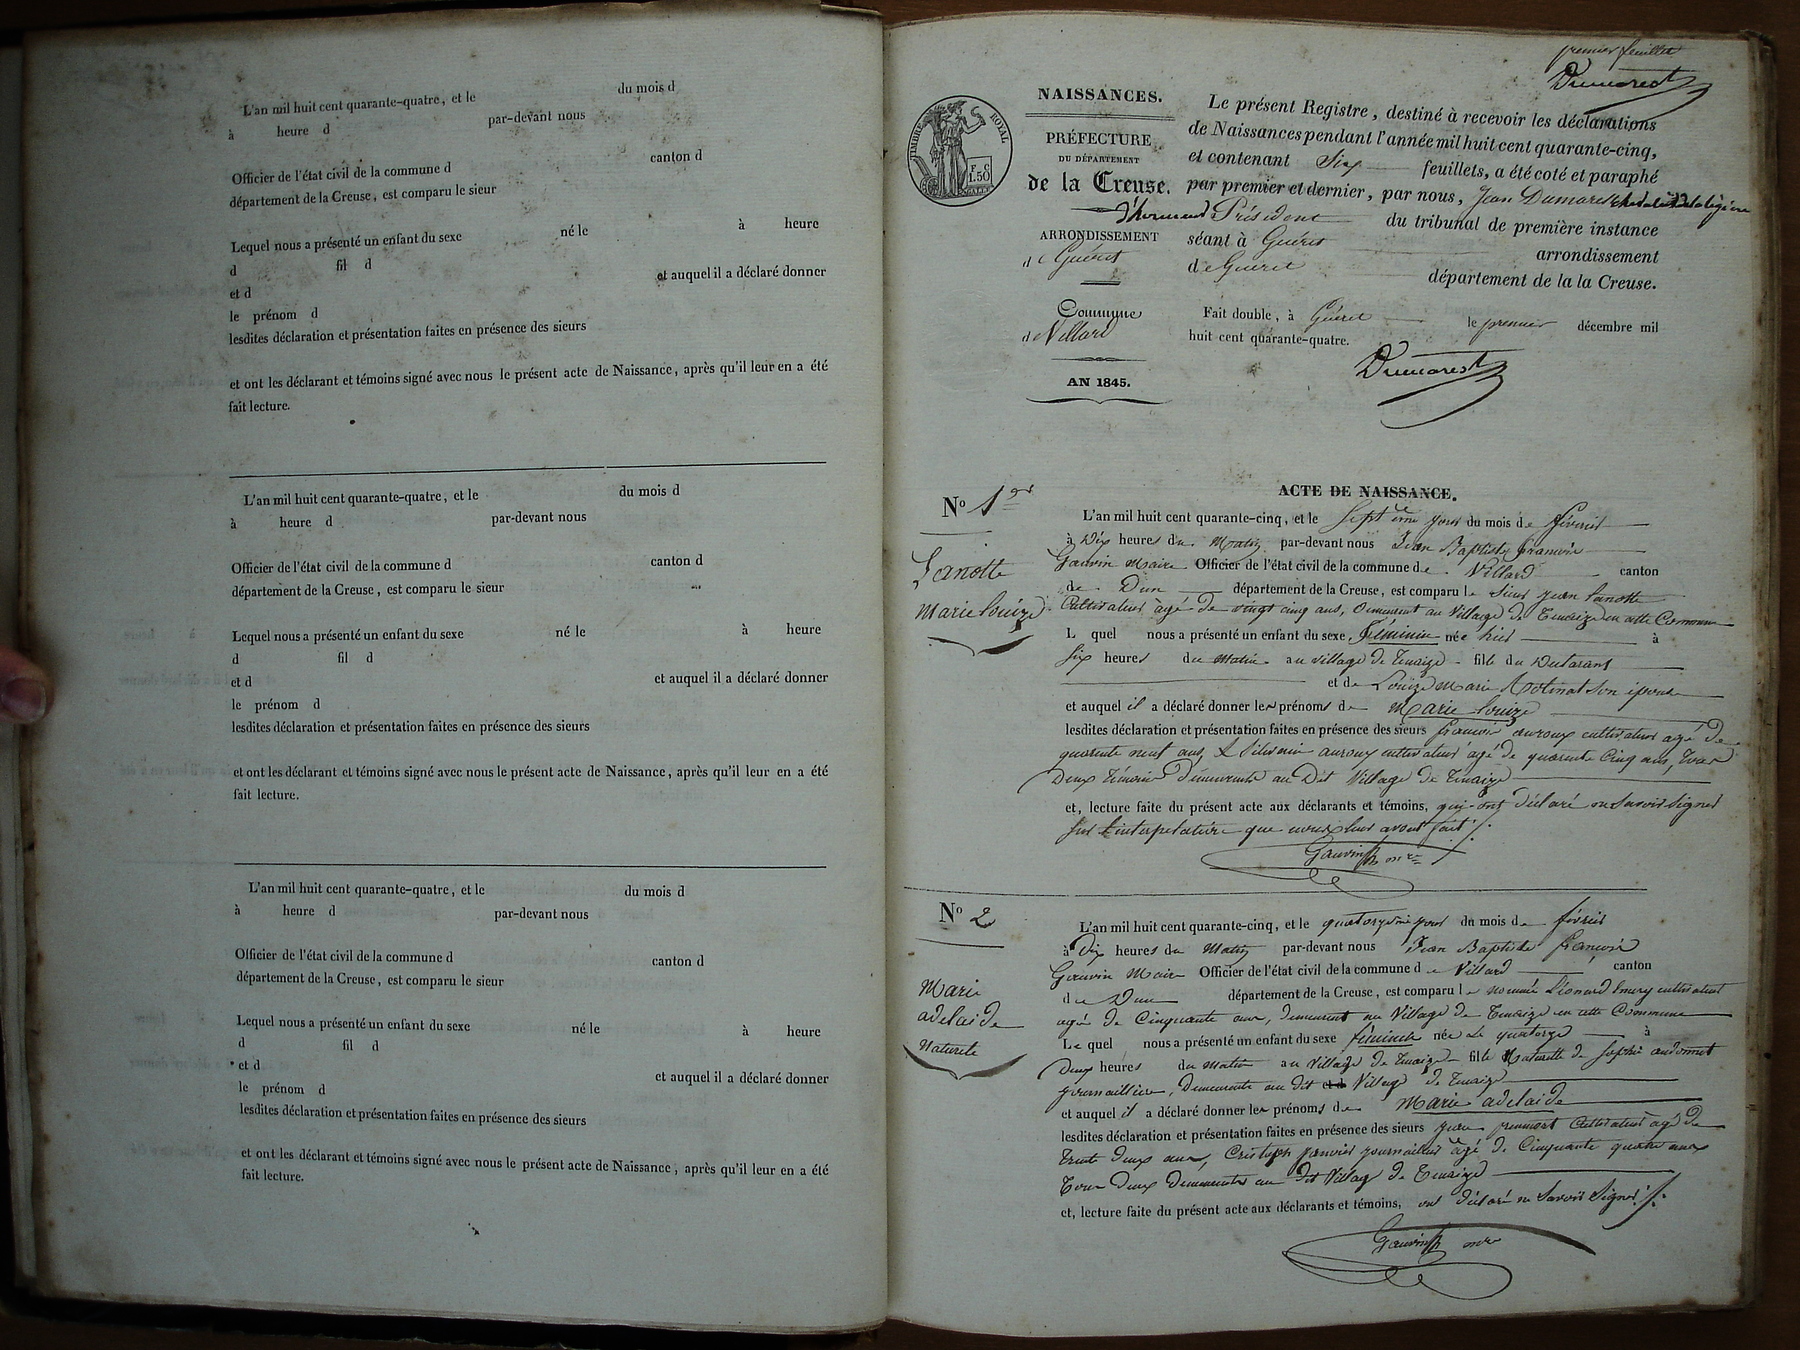 L'an mil huit cent quarante-quatre, et le du mois d
à heure d par-devant nous
Officier de l'état civil de la commune d canton d
département de la Creuse, est comparu le sieur
Lequel nous a présenté un enfant du sexe né le à heure
d fil d
et d et auquel il a déclaré donner
le prénom d
lesdites déclaration et présentation faites en présence des sieurs
et ont les déclarant et témoins signé avec nous le présent acte de Naissance, après qu'il leur en a été
fait lecture.
L'an mil huit cent quarante-quatre, et le du mois d
à heure d par-devant nous
Officier de l'état civil de la commune d canton d
département de la Creuse, est comparu le sieur
Lequel nous a présenté un enfant du sexe né le à heure
d fil d
et d et auquel il a déclaré donner
le prénom d
lesdites déclaration et présentation faites en présence des sieurs
et ont les déclarant et témoins signé avec nous le présent acte de Naissance, après qu'il leur en a été
fait lecture.
L'an mil huit cent quarante-quatre, et le du mois d
à heure d par-devant nous
Officier de l'état civil de la commune d canton d
département de la Creuse, est comparu le sieur
Lequel nous a présenté un enfant du sexe né le à heure
d fil d
et d et auquel il a déclaré donner
le prénom d
lesdites déclaration et présentation faites en présence des sieurs
et ont les déclarant et témoins signé avec nous le présent acte de Naissance, après qu'il leur en a été
fait lecture.
premier feuillet
Dumarest
TIMBRE ROYAL
F. C
1.50
NAISSANCES.
PRÉFECTURE
DU DÉPARTEMENT
de la Creuse.
ARRONDISSEMENT
de Guéret
Commune
de Villard
AN 1845.
Le présent Registre, destiné à recevoir les déclarations
de Naissances pendant l'année mil huit cent quarante-cinq,
et contenant Six feuillets, a été coté et paraphé
par premier et dernier, par nous, Jean Dumarest
Président du tribunal de première instance
séant à Guéret arrondissement
de Guéret département de la la Creuse.
Fait double, à Guéret le premier décembre mil
huit cent quarante-quatre.
Dumarest
ACTE DE NAISSANCE.
N° 1er
Lanotte
Marie Louize
L'an mil huit cent quarante-cinq, et le Septième jour du mois de février
à Dix heures du Matin par-devant nous Jean Baptiste francois
Gauvin Maire Officier de l'état civil de la commune de Villard canton
de Dun département de la Creuse, est comparu le Sieur jean Lanotte
Cultivateur âgé de vingt cinq ans, demeurant au Village de en cette Commune
Lequel nous a présenté un enfant du sexe féminin née hier à
Six heures du Matin au village de fille du Déclarant
et de Louize Marie Son épouse
et auquel il a déclaré donner les prénoms de Marie Louize
lesdites déclaration et présentation faites en présence des sieurs francois auroux cultivateur agé de
quarante neuf ans, & auroux cultivateur âgé de quarante Cinq ans, tous
Deux témoins demeurants au Dit Village de
et, lecture faite du présent acte aux déclarants et témoins, qui ont déclaré ne Savoir Signer
Sur que nous leur avons fait
Gauvin mre
N° 2
Marie
adelaide
Naturele
L'an mil huit cent quarante-cinq, et le quatorzième jour du mois de février
à Dix heures du Matin par-devant nous Jean Baptiste francois
Gauvin Maire Officier de l'état civil de la commune de Villard canton
de Dun département de la Creuse, est comparu le nommé Léonard cultivateur
agé de Cinquante ans, demeurant au Village de en cette Commune
Lequel nous a présenté un enfant du sexe féminin née le quatorze à
Deux heures du Matin au Village de fille Naturelle de Sophie
journaliere, Demeurante au dit Village de
et auquel il a déclaré donner les prénoms de Marie adelaide
lesdites déclaration et présentation faites en présence des sieurs jean Cultivateur âgé de
trente deux ans, Cristoph janvier journalier âgé de Cinquante quatre ans
tous Deux Demeurants au dit Village de
et, lecture faite du présent acte aux déclarants et témoins, ont déclaré ne Savoir Signer
Gauvin mre